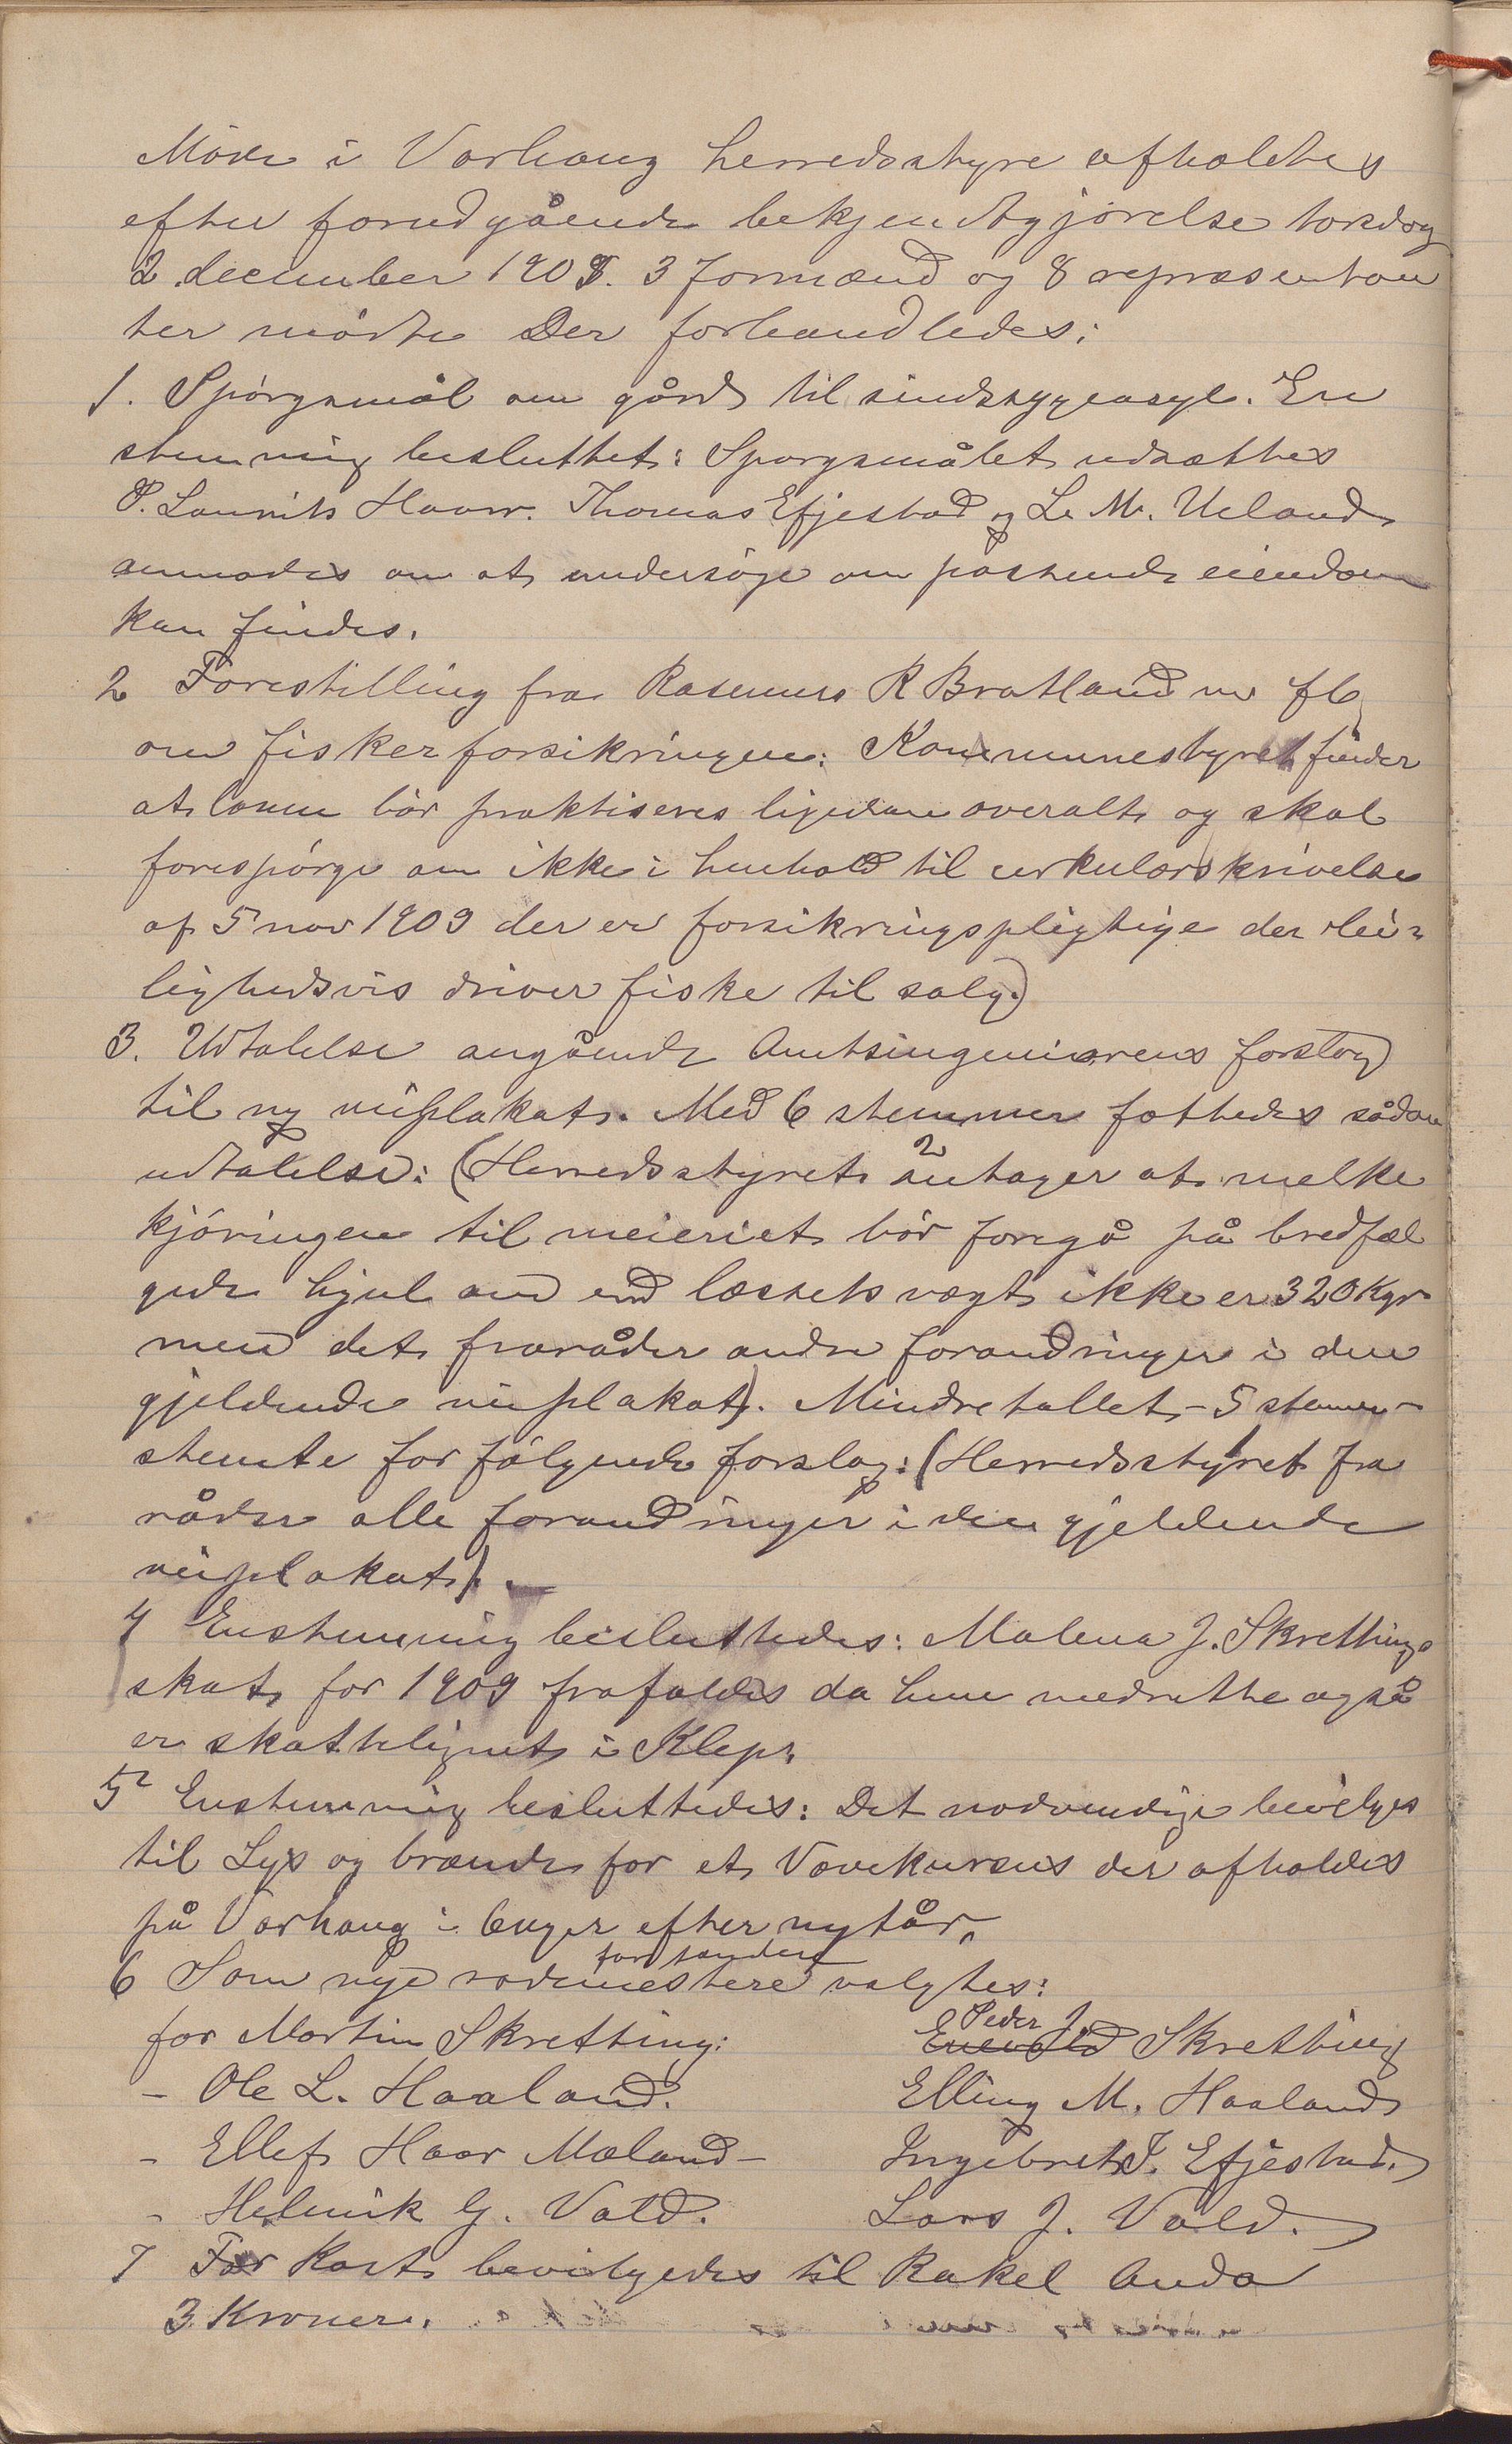 Möde i Varhaug herredsstyre afholdtes
efter forudgående bekjendtgjörelse torsdag
2 december 1909. 3 formænd og 8 repræsentan
ter mödte Der forhandledes:
1. Spörgsmål om gård til sindssygeasyl. En
stemmig besluttet: Sporgsmålet udsættes
P. Laurits Haarr. Thomas Efjestad og L. M. Ueland
anmodes om at undersöge om passende eiendom
kan findes.
2 Forestilling fra Rasmus R Bratland m fl
om fiskerforsikringen: Kommunestyret finder
at loven bör praktiseres ligedan overalt og skal
forespörge om ikke i henhold til cirkulærskrivelse
af 5 nov 1909 der er forsikringspligtige der lei-
lighedsvis driver fiske til salg.)
3. Udtalelse angående Amtsingeniörens forslag
til ny veiplakat. Med 6 stemmer fattedes sådan
udtalelse: (Herredsstyret antager at melke
kjöringen til meieriet bör foregå på bredfæl
gede hjul om end læssets vægt ikke er 320 Kgr
men det fraråder andre forandringer i den
gjeldende veiplakat). Mindretallet - 5 stemmer -
stemte for fölgende forslag: (Herredsstyret fra
råder alle forandringer i den gjeldende
veiplakat).
4 Enstemmig besluttedes: Malena J. Skrettings
skat for 1909 frafaldes da hun medrette også
er skattelignet i Klep.
5 Enstemmig besluttedes: Det nodvendige bevilges
til Lys og brænde for et Vævekursus der afholdes
på Varhaug i 6 uger efter nytår.
6 Som nye rodemestere valgtes:
for Martin Skretting: Peder J. Skretting
- Ole L. Haaland. Elling M. Haaland
- Ellef Haar Mæland - Ingebret T. Efjestad.
- Helmik G. Vold. Lars J. Vold.
7 For Kost bevilgedes til Rakel Anda
3 Kroner.